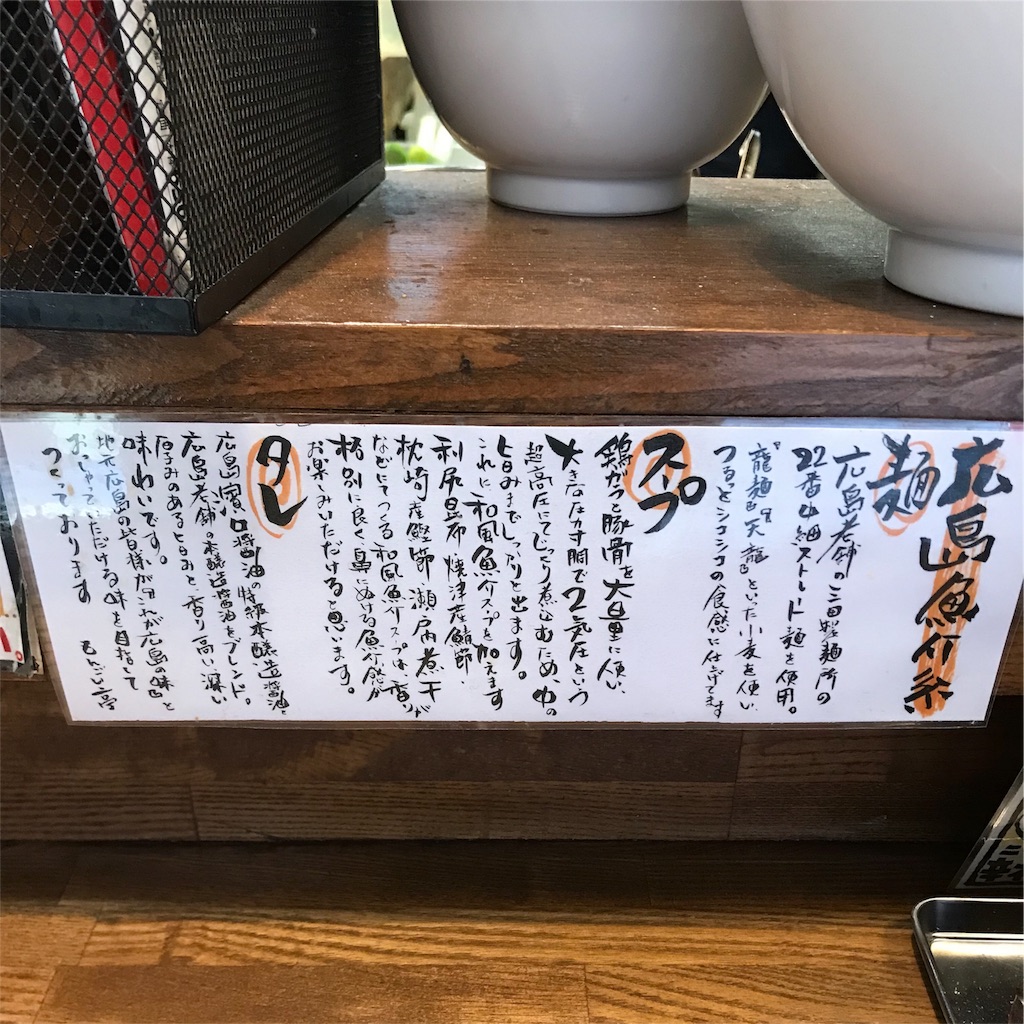 広島魚介系
麺
広島老舗の三田製麺所の
22番中細ストレート麺を使用。
『龍麺』『天龍』といった小麦を使い
つるっとシコシコの食感に仕上げてます
スープ
鶏ガラと豚骨を大量に使い
大きな寸胴で2気圧という
超高圧にてじっくり煮込むため中の
旨みまでしっかりと出ます。
これに和風魚介スープを加えます
利尻昆布 焼津産鯖節
枕崎産鰹節 瀬戸内煮干
などにてつくる和風魚介スープは香りが
格別に良く鼻にぬける魚介感が
お楽しみいただけると思います。
タレ
広島濱口醤油の特級本醸造醤油と
広島老舗の本醸造醤油をブレンド。
厚みのある旨みと香り高い深い
味わいです。
地元広島の皆様がこれが広島の味と
おしゃっていただける味を目指して
つくっております
もんごい亭